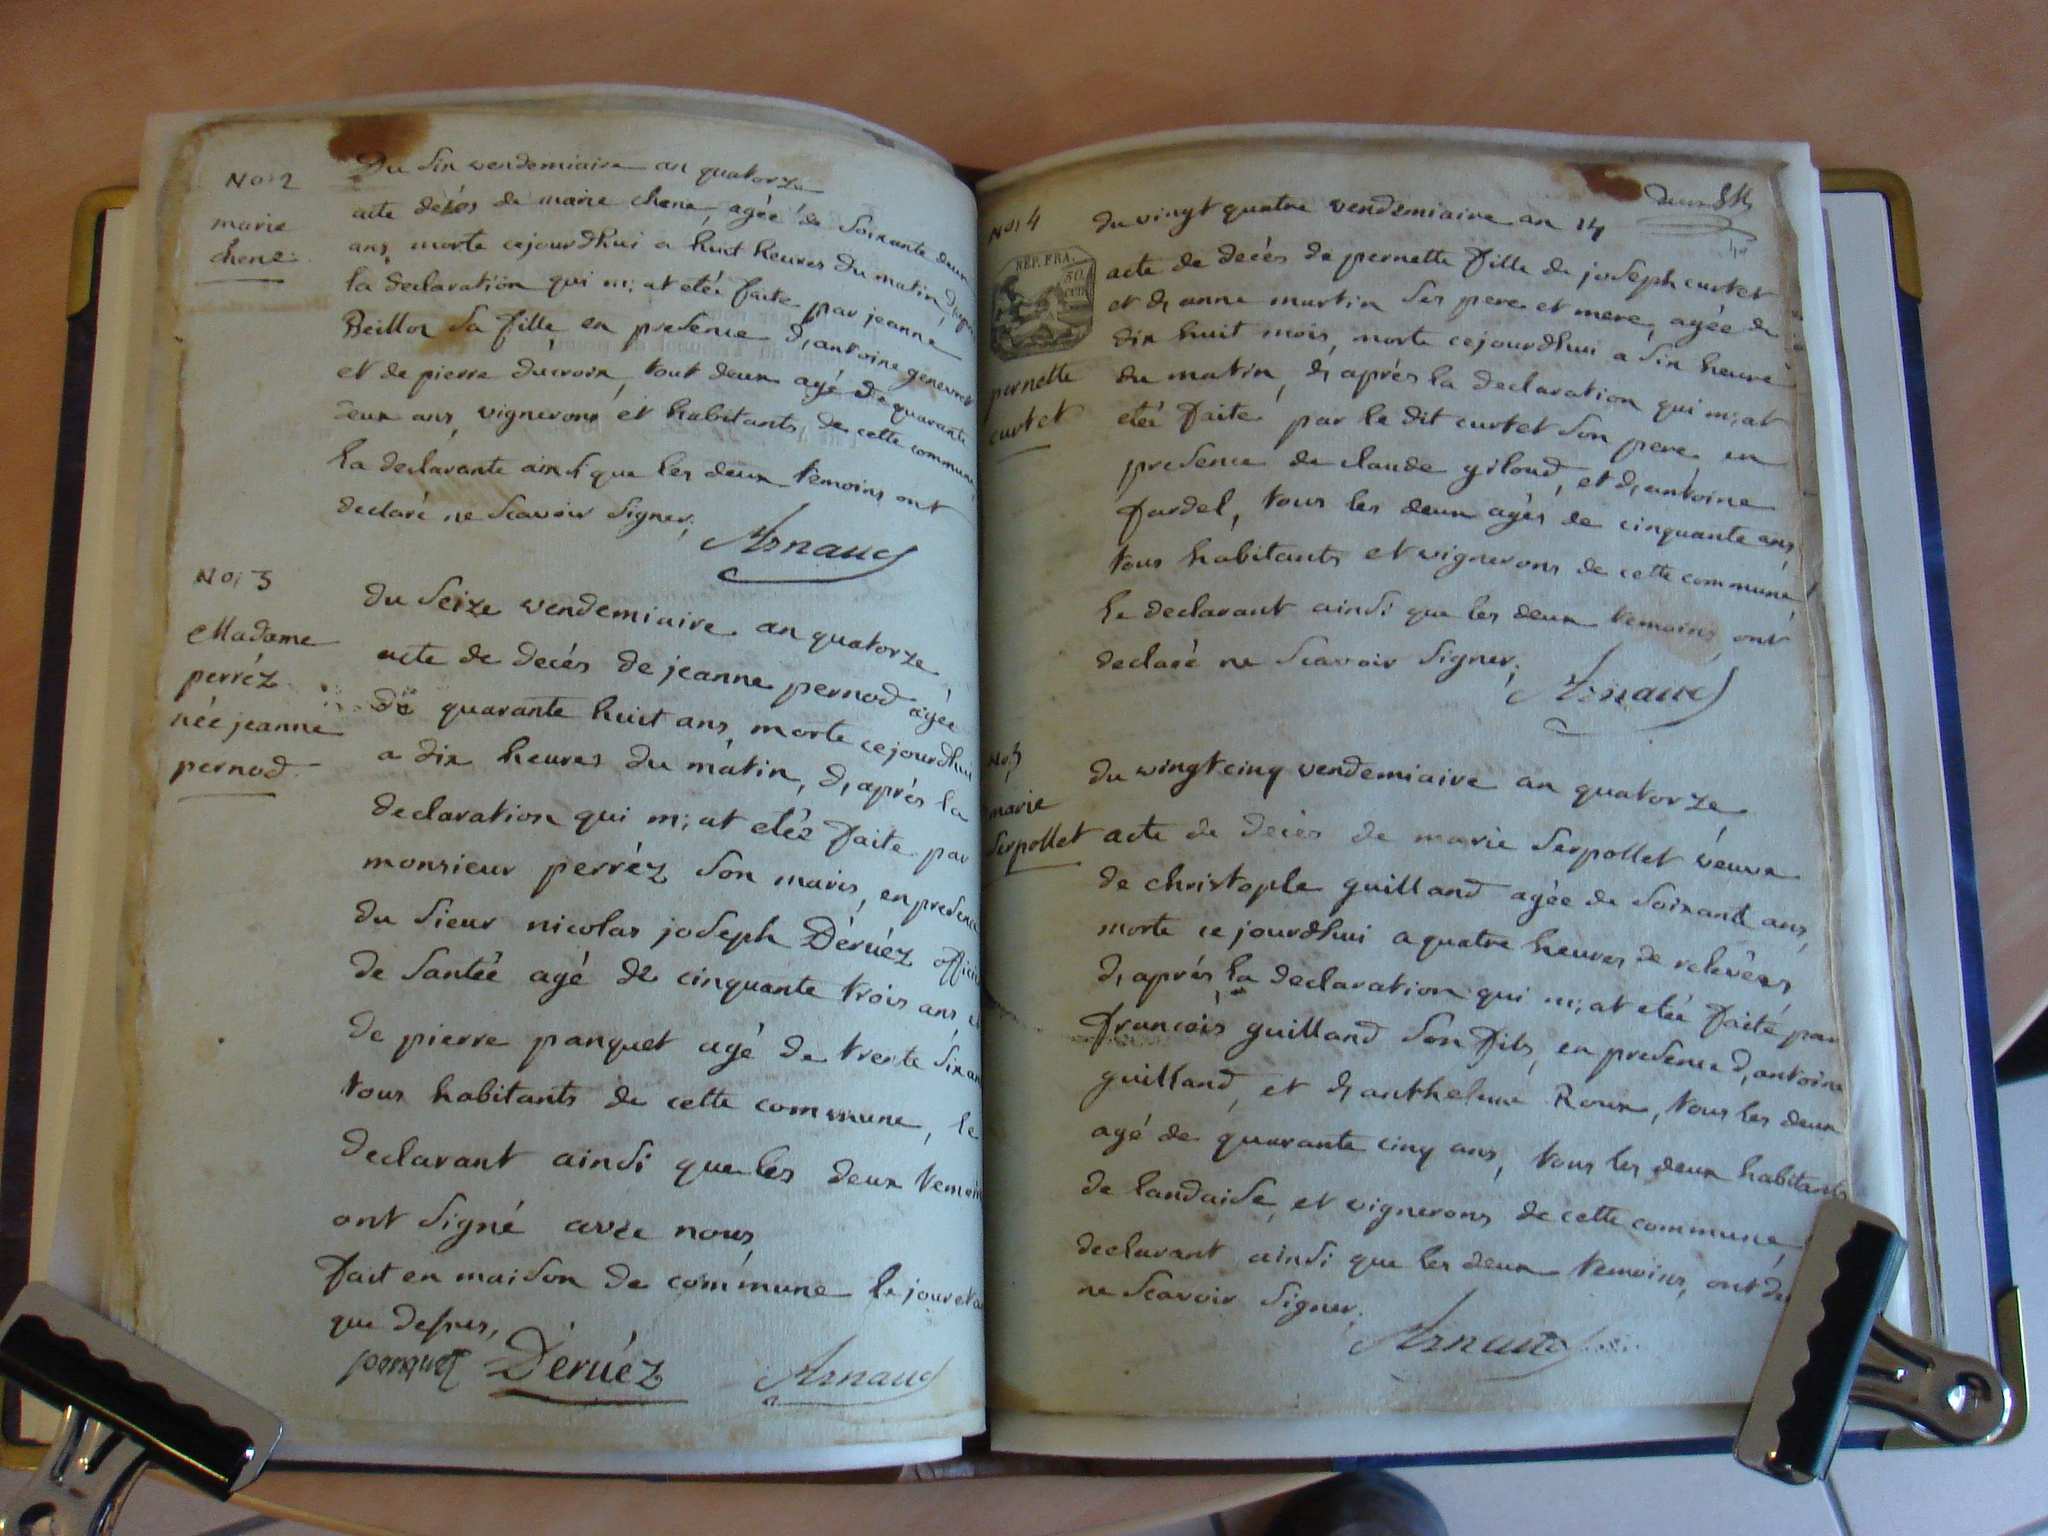 No; 2
marie
chene
Du six vendemiaire an quatorze
acte décès de marie chene, agée de Soixante deux
ans, morte cejourdhui a huit heures du matin,
la declaration qui m; at etée faite par jeanne
Beillon Sa fille en presence d, antoine genevret
et de pierre ducroix, tout deux agé de quarante
deux ans, vignerons et habitants de cette commune,
la declarante ainsi que les deux temoins ont
declaré ne Scavoir Signer;
Arnaud
No; 3
Madame
perréz
née jeanne
pernod
du Seize vendemiaire an quatorze
acte de decés de jeanne pernod agée
de quarante huit ans, morte cejourdhui
a dix heures du matin, d, aprés la
declaration qui m; at etée faite par
monsieur perréz Son maris, en presence
du Sieur nicolas joseph Déruéz officier
de Santée agé de cinquante trois ans et
de pierre panquet agé de trente Six ans
tous habitants de cette commune, le
declarant ainsi que les deux temoins
ont Signé avec nous,
fait en maison de commune le jour et an
que dessus,
Déruéz Arnaud
No; 4
REP. FRA.
50
cen
pernette
curtet
du vingt quatre vendemiaire an 14
acte de decés de pernette fille de joseph curtet
et d, anne martin Ses pere et mere, agée de
dix huit mois, morte cejourdhui a Six heure
du matin, d, aprés la declaration qui m; at
etée faite par le dit curtet Son pere, en
presence de claude giloud, et d, antoine
fardel, tous les deux agés de cinquante ans,
tous habitants et vignerons de cette commune,
le declarant ainsi que les deux temoins ont
declaré ne Scavoir Signer;
Arnaud
No; 5
marie
Serpollet
du vingt cinq vendemiaire an quatorze
acte de decés de marie Serpollet veuve
de christople guilland agée de Soixante ans,
morte ce jourdhui a quatre heures de relevées
d, aprés la declaration qui m; at etée faite par
françois guilland Son fils, en presence d, antoine
guilland, et d, anthelme Roux, tous les deux
agé de quarante cinq ans, tous les deux habitants
de landaise, et vignerons de cette commune,
declarant ainsi que les deux temoins, ont de
ne Scavoir Signer;
Arnaud